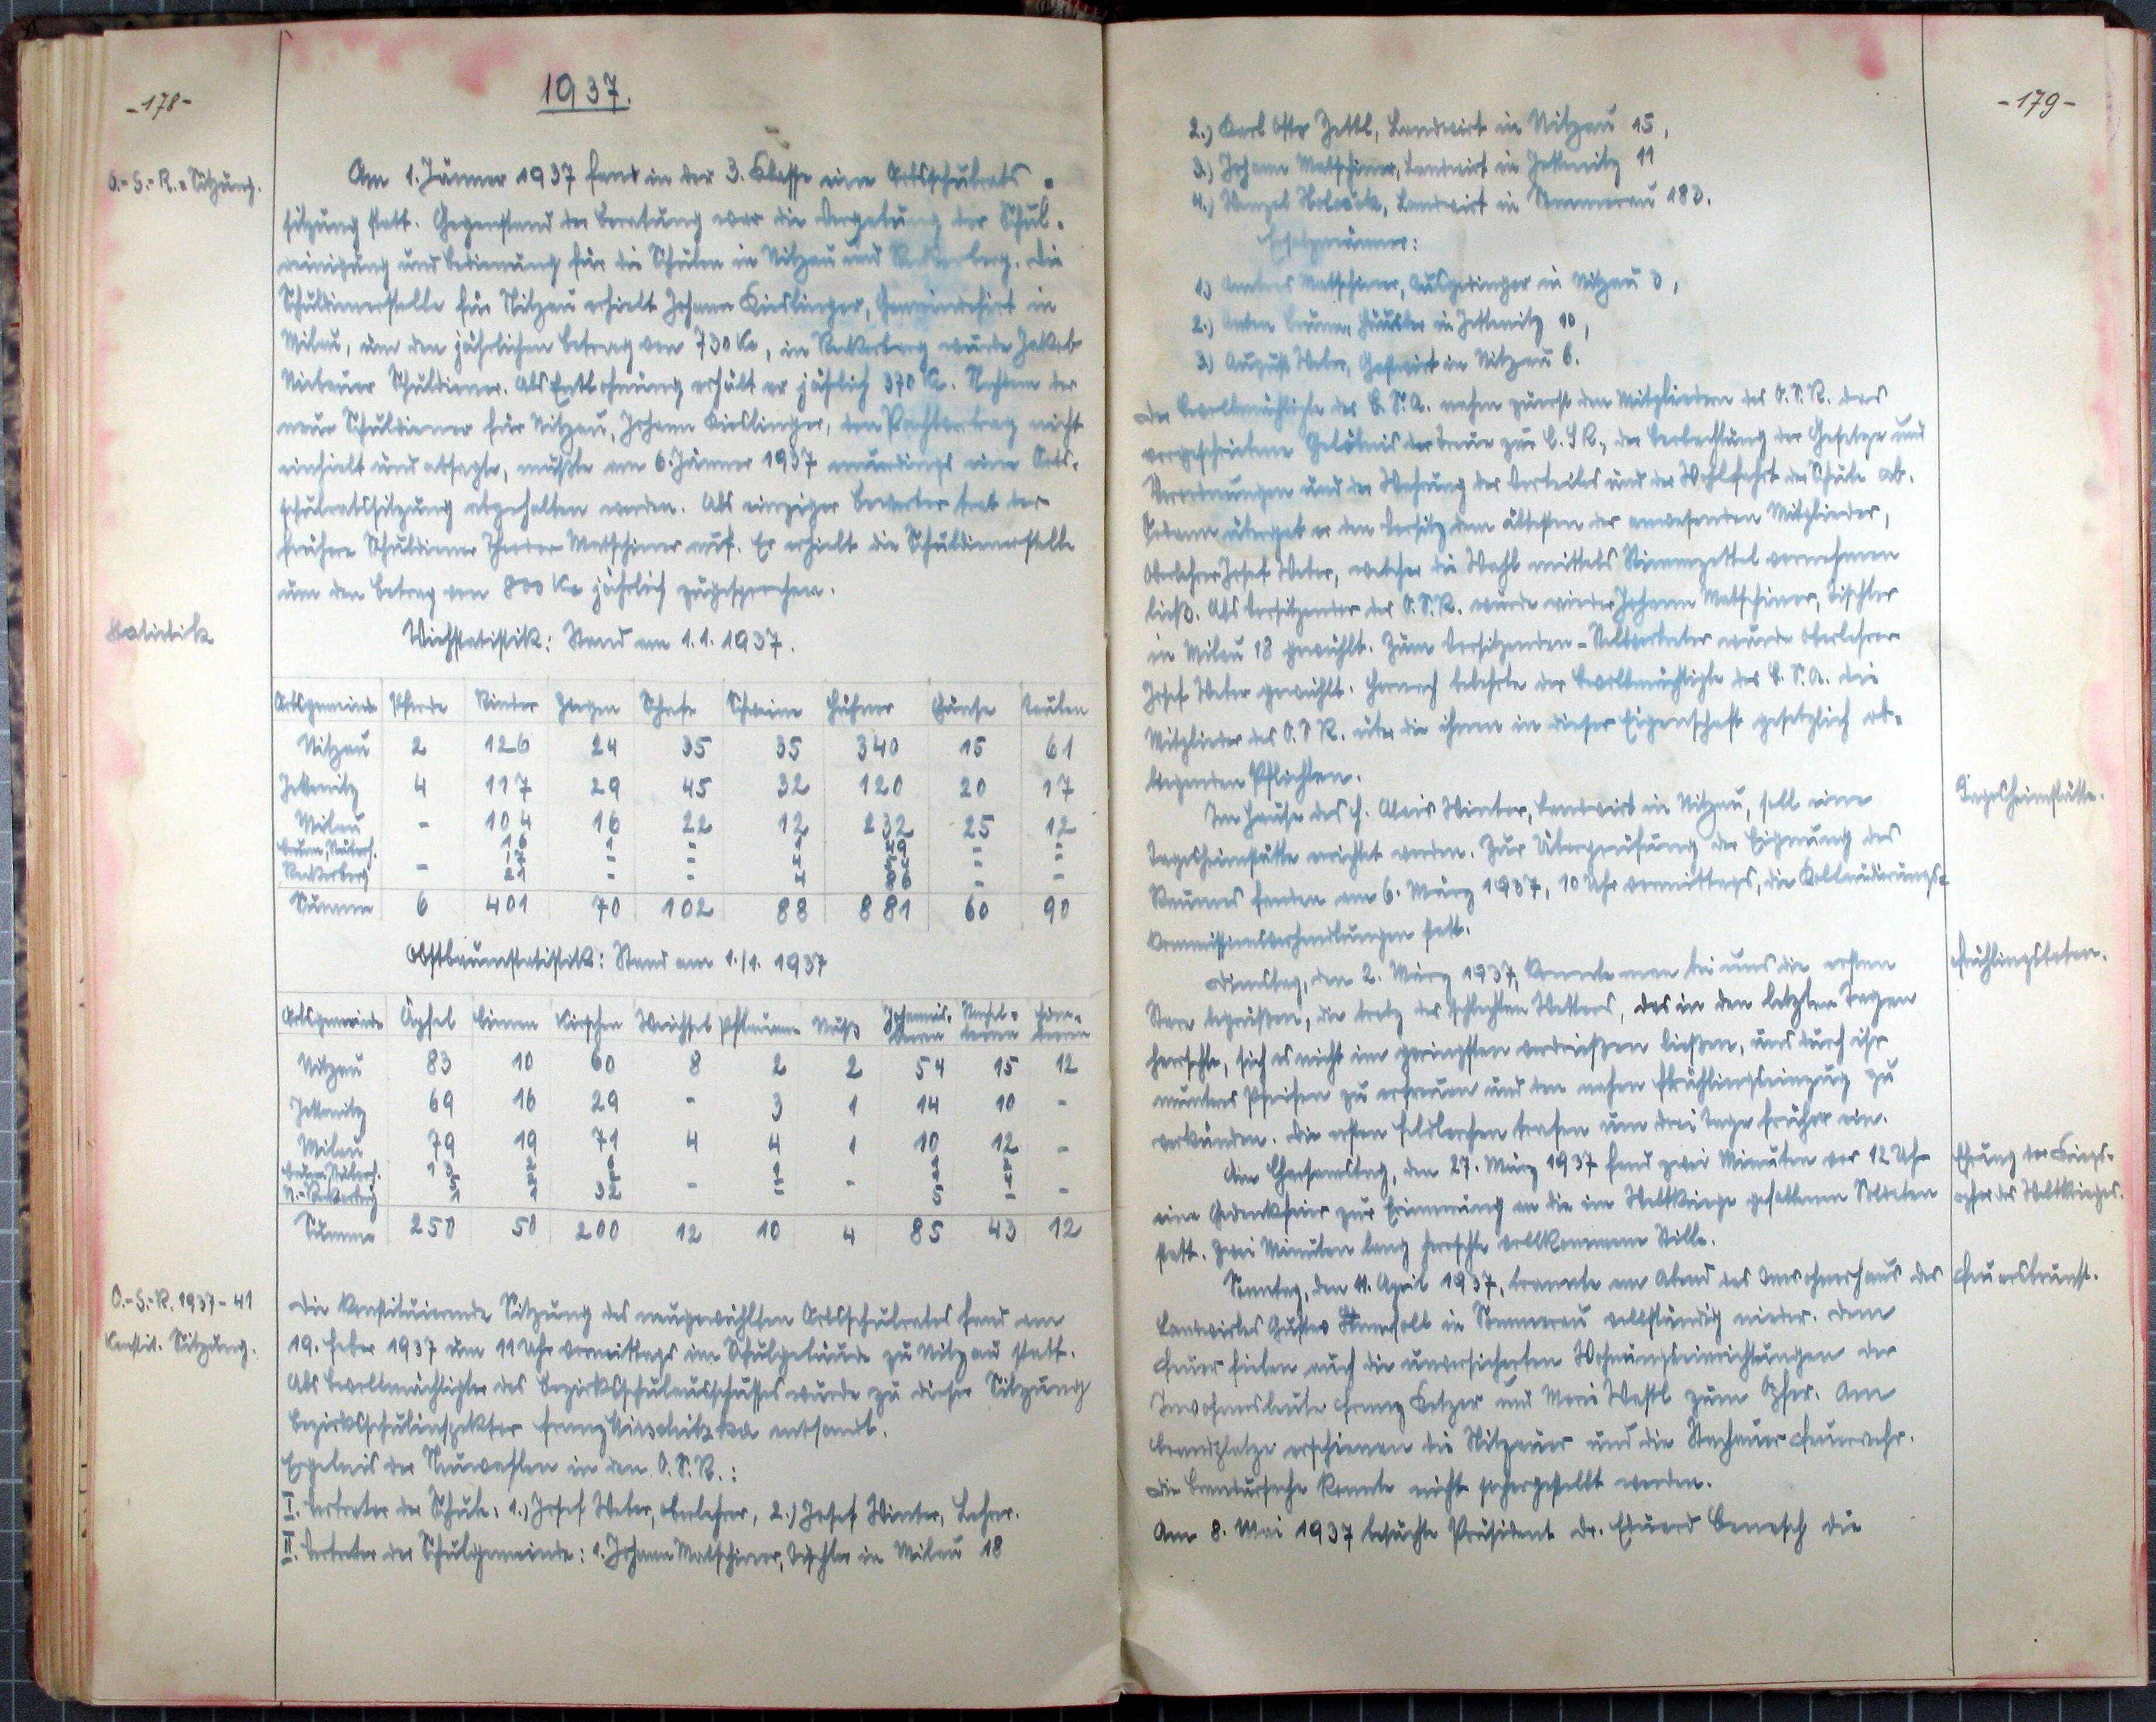 -178-
1937.
O.-S.-R.-Sitzung.
Am 1. Jänner 1937 fand in der 3. Klasse eine Ortsschulrats-
sitzung statt. Gegenstand der Beratung war die Vergebung der Schul-
reinigung und Bedienung für die Schulen in Nitzau und Reckerberg. Die
Schuldienerstelle für Nitzau erhielt Johann Kieslinger, Gemeindehirt in
Milau, um den jährlichen Betrag von 730 Kč, in Reckerberg wurde Jakob
Schuldiener. Als Entlohnung erhält er jährlich 370 Kč. Nachdem der
neue Schuldiener für Nitzau, Johann Kieslinger, den Pachtvertrag nicht
einhielt und absagte, mußte am 6. Jänner 1937 neuerdings eine Orts-
schulratssitzung abgehalten werden. Als einziger Bewerber trat der
frühere Schuldiener Theodor Matschiner auf. Er erhielt die Schuldienerstelle
um den Betrag von 800 Kč jährlich zugesprochen.
Statistik
Viehstatistik: Stand am 1.1.1937.
Ortsgemeinde Pferde Rinder Ziegen Schafe Schweine Hühner Gänse Tauben
Nitzau 2 126 24 35 35 340 15 61
Jettenitz 4 117 29 45 32 120 20 17
Milau - 104 16 22 12 232 25 12
16 1 - 1 49 - -
17 - - 4 - -
Reckerberg - 21 - - 4 86 - -
Summe 6 401 70 102 88 881 60 90
Obstbaumstatistik: Stand am 1./1. 1937
Ortsgemeinde Äpfel Birnen Kirschen Weichsel Pflaumen Nuß Johannis-beeren Stachel-beeren Him-beeren
Nitzau 83 10 60 8 2 2 54 15 12
Jettenitz 69 16 29 - 3 1 14 10 -
Milau 79 19 71 4 4 1 10 12 -
N.-Reckerberg 1 1 32 - - - 5 - -
Summe 250 50 200 12 10 4 85 43 12
O.-S.-R. 1937-41
Constit. Sitzung.
Die konstituierende Sitzung des neugewählten Ortsschulrates fand am
19. Feber 1937 um 11 Uhr vormittags im Schulgebäude zu Nitzau statt.
Als Bevollmächtigter des Bezirksschulausschusses wurde zu dieser Sitzung
Bezirksschulinspektor Franz entsandt.
Ergebnis der Neuwahlen in den O.S.R.:
I. Vertreter der Schule: 1.) Josef Weber, Oberlehrer, 2.) Josef Winter, Lehrer.
II. Vertreter der Schulgemeinde: 1. Johann Matschiner, Tischler in Milau 18
-179-
2.) Karl Zettl, Landwirt in Nitzau 15,
3.) Johann Matschiner, Landwirt in Jettenitz 11
4.) Wenzel Landwirt in Stimmerau 183.
Ersatzmänner:
1.) Andreas Matschiner, Ausgedinger in Nitzau 3,
2.) Anton Häusler in Jettenitz 10,
3.) August Weber, Gastwirt in Nitzau 6.
Der Bevollmächtigte des B.S.A. nahm zuerst den Mitgliedern des O.S.R. das
vorgeschriebene Gelöbnis der Treue zur Č.S.R., der Beobachtung der Gesetze und
Verordnungen und der Wahrung des Vorteiles und der Wohlfahrt der Schule ab.
Sodann übergab er den Vorsitz dem ältesten der anwesenden Mitglieder,
Oberlehrer Josef Weber, welcher die Wahl mittels Stimmzettel vornehmen
ließ. Als Vorsitzender des O.S.R. wurde wieder Johann Matschiner, Tischler
in Milau 18 gewählt. Zum Vorsitzenden-Stellvertreter wurde Oberlehrer
Josef Weber gewählt. Hernach belehrte der Bevollmächtigte des B.S.A. die
Mitglieder des O.S.R. über die ihnen in dieser Eigenschaft gesetzlich ob-
liegenden Pflichten.
Tagesheimstätte.
Im Hause des H. Alois Winter, Landwirt in Nitzau, soll eine
Tagesheimstätte errichtet werden. Zur Überprüfung der Eignung des
Raumes fanden am 6. März 1937, 10 Uhr vormittags, die Kollaudierungs-
kommissionsverhandlungen statt.
Frühlingsboten.
Dienstag, den 2. März 1937, konnte man bei uns die ersten
Stare begrüßen, die trotz des schlechten Wetters, das in den letzten Tagen
herrschte, sich es nicht im geringsten verdrießen ließen, uns durch ihr
munteres Pfeifen zu erfreuen und den nahen Frühlingseinzug zu
verkünden. Die ersten Feldlerchen trafen um drei Tage früher ein.
Ehrung der Kriegs-
opfer des Weltkrieges.
Am Charsamstag, den 27. März 1937 fand zwei Minuten vor 12 Uhr
eine Gedenkfeier zur Erinnerung an die im Weltkriege gefallenen Soldaten
statt. Zwei Minuten lang herrschte vollkommene Stille.
Feuersbrunst.
Sonntag, den 11. April 1937, brannte am Abend das Inwohnerhaus des
Landwirtes Gustav in Stimmerau vollständig nieder. Dem
Feuer fielen auch die unversicherten Wohnungseinrichtungen der
Inwohnersleute Franz und Marie Wastl zum Opfer. Am
Brandplatze erschienen die Nitzauer und die Stachauer Feuerwehr.
Die Brandursache konnte nicht sichergestellt werden.
Am 8. Mai 1937 besuchte Präsident Dr. Eduard Benesch die